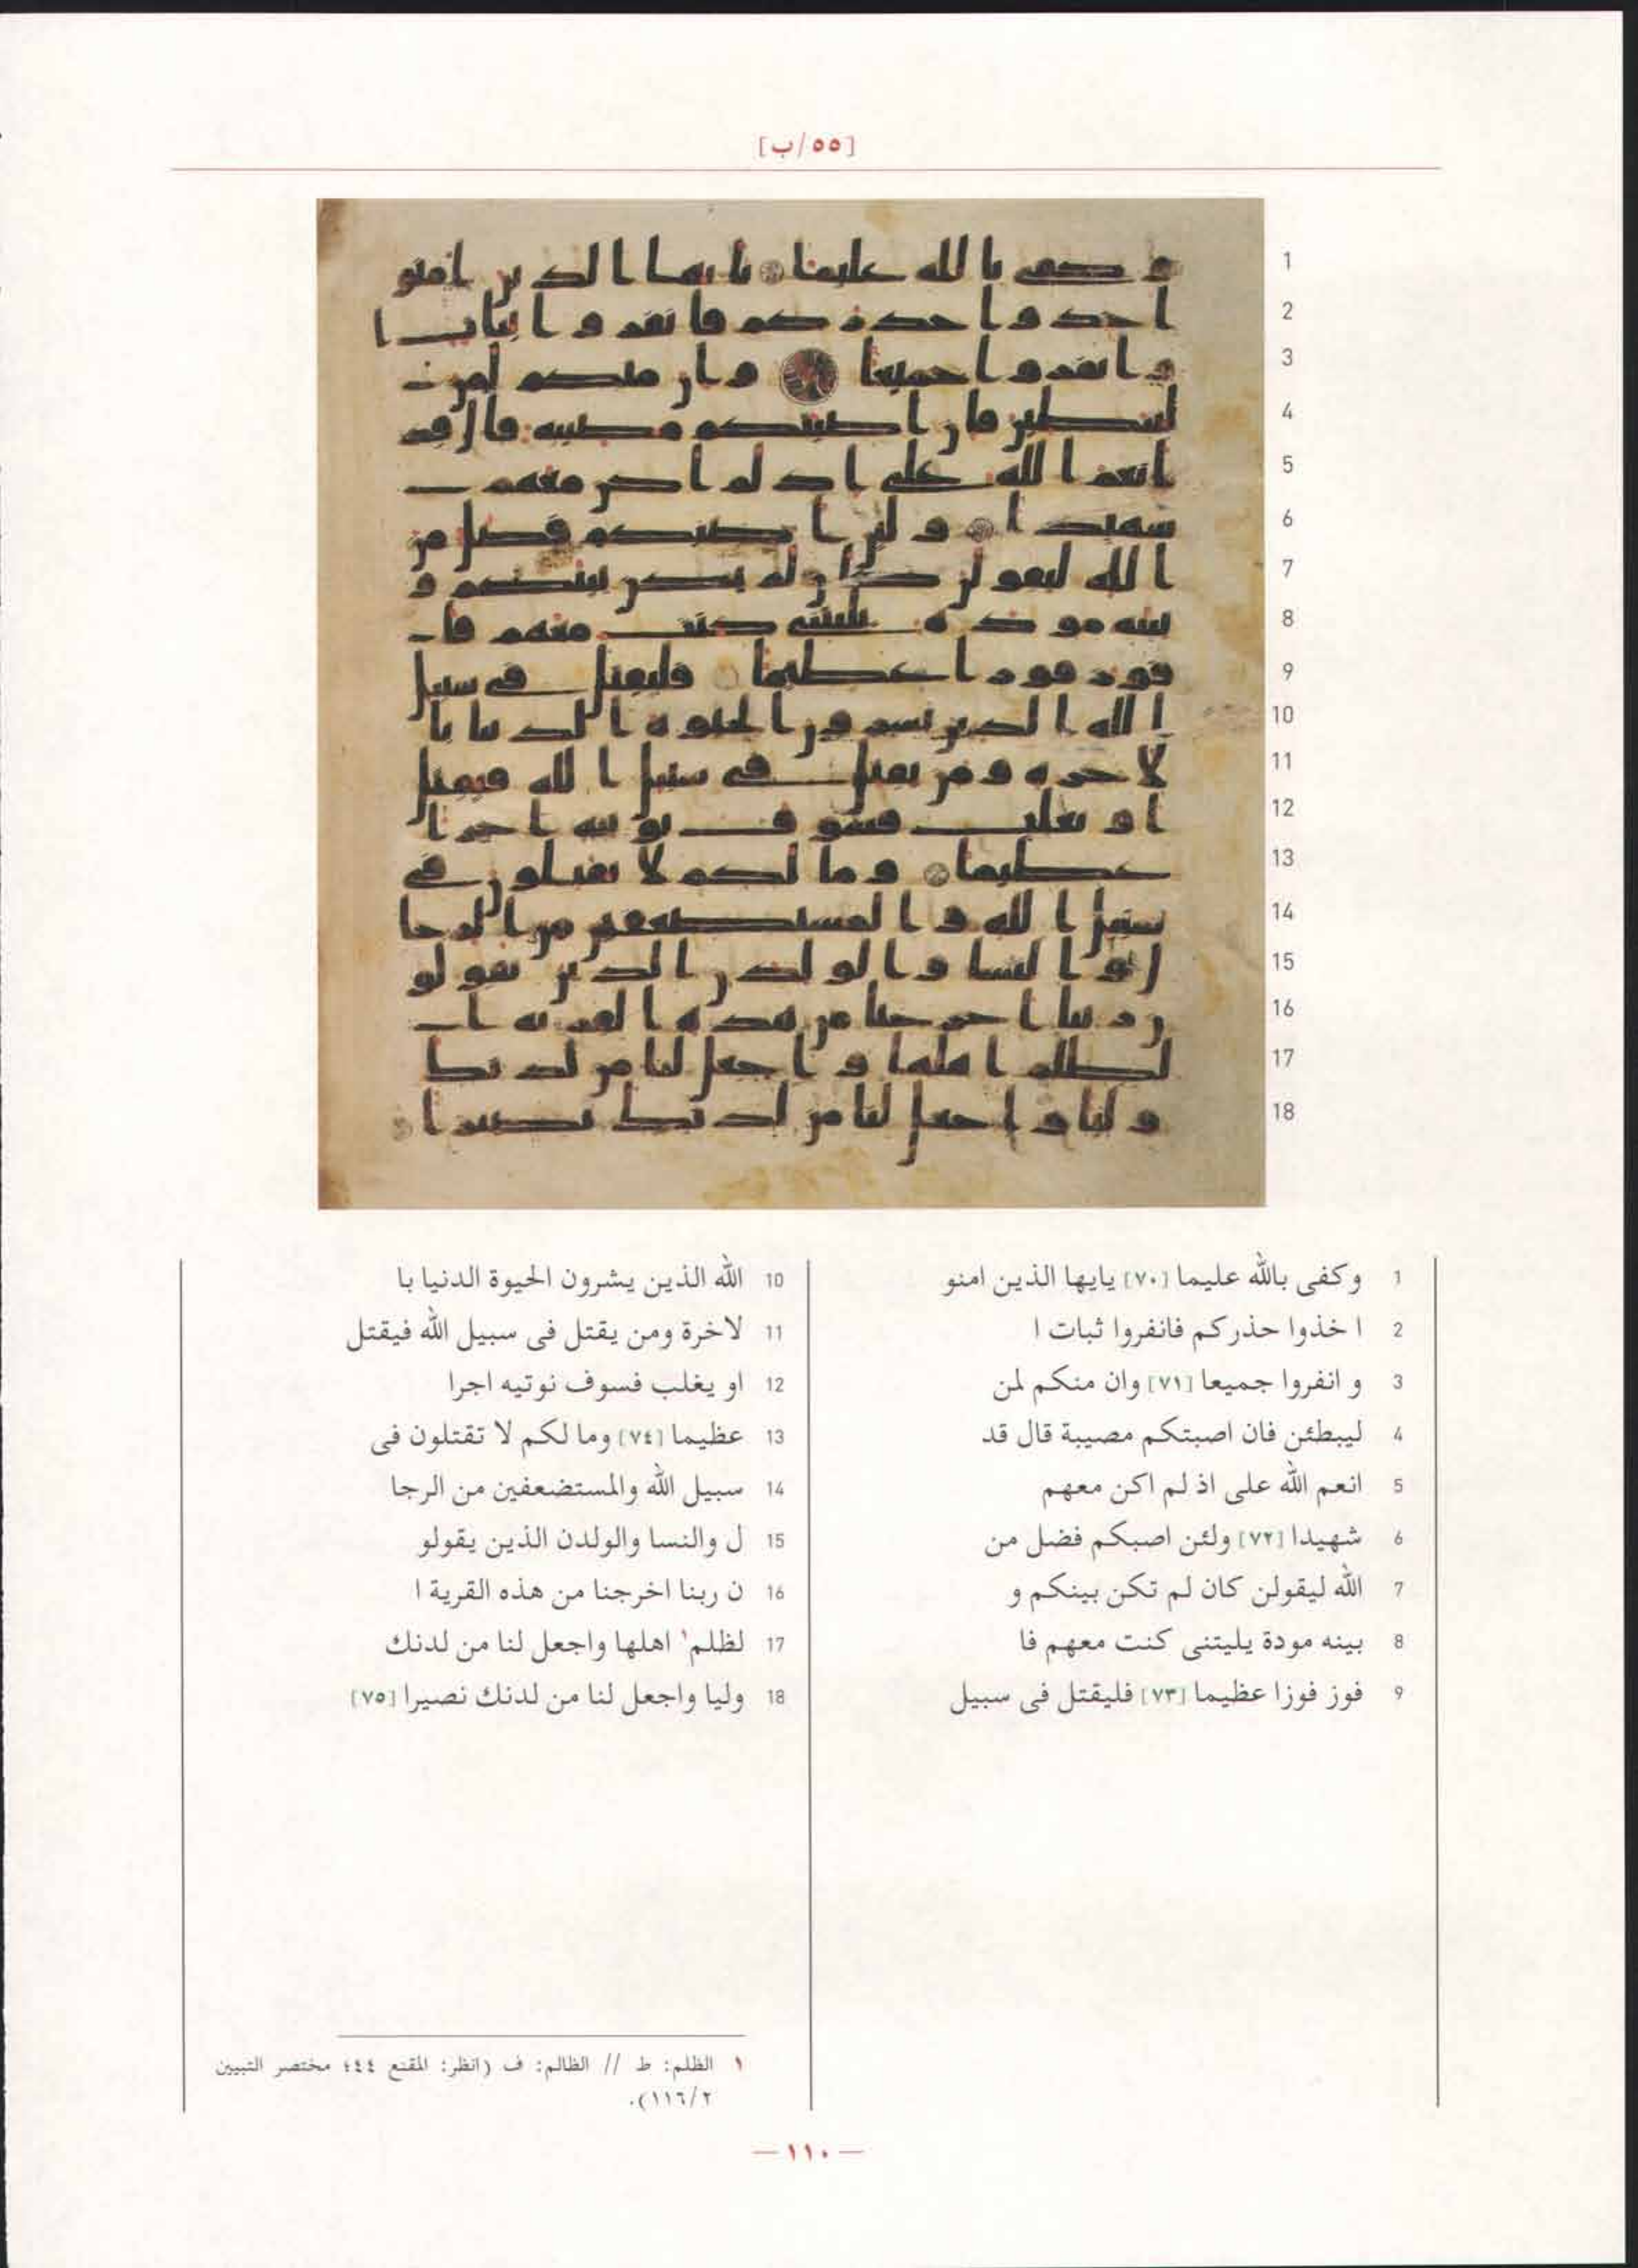 [٥٥/ب]
1 وكفى بالله عليما [٧٠] يايها الذين امنو
2 ا خذوا حذركم فانفروا ثبات ا
3 و انفروا جميعا [٧١] وان منكم لمن
4 ليبطئن فان اصبتكم مصيبة قال قد
5 انعم الله على اذ لم اكن معهم
6 شهيدا [٧٢] ولئن اصبكم فضل من
7 الله ليقولن كان لم تكن بينكم و
8 بينه مودة يليتنى كنت معهم فا
9 فوز فوزا عظيما [٧٣] فليقتل فى سبيل
10 الله الذين يشرون الحيوة الدنيا با
11 لاخرة ومن يقتل فى سبيل الله فيقتل
12 او يغلب فسوف نوتيه اجرا
13 عظيما [٧٤] وما لكم لا تقتلون فى
14 سبيل الله والمستضعفين من الرجا
15 ل والنسا والولدن الذين يقولو
16 ن ربنا اخرجنا من هذه القرية ا
17 لظلم١ اهلها واجعل لنا من لدنك
18 وليا واجعل لنا من لدنك نصيرا [٧٥]
١ الظلم: ط // الظالم: ف (انظر: المقنع ٤٤؛ مختصر التبيين
٢/١١٦).
— ١١٠ —